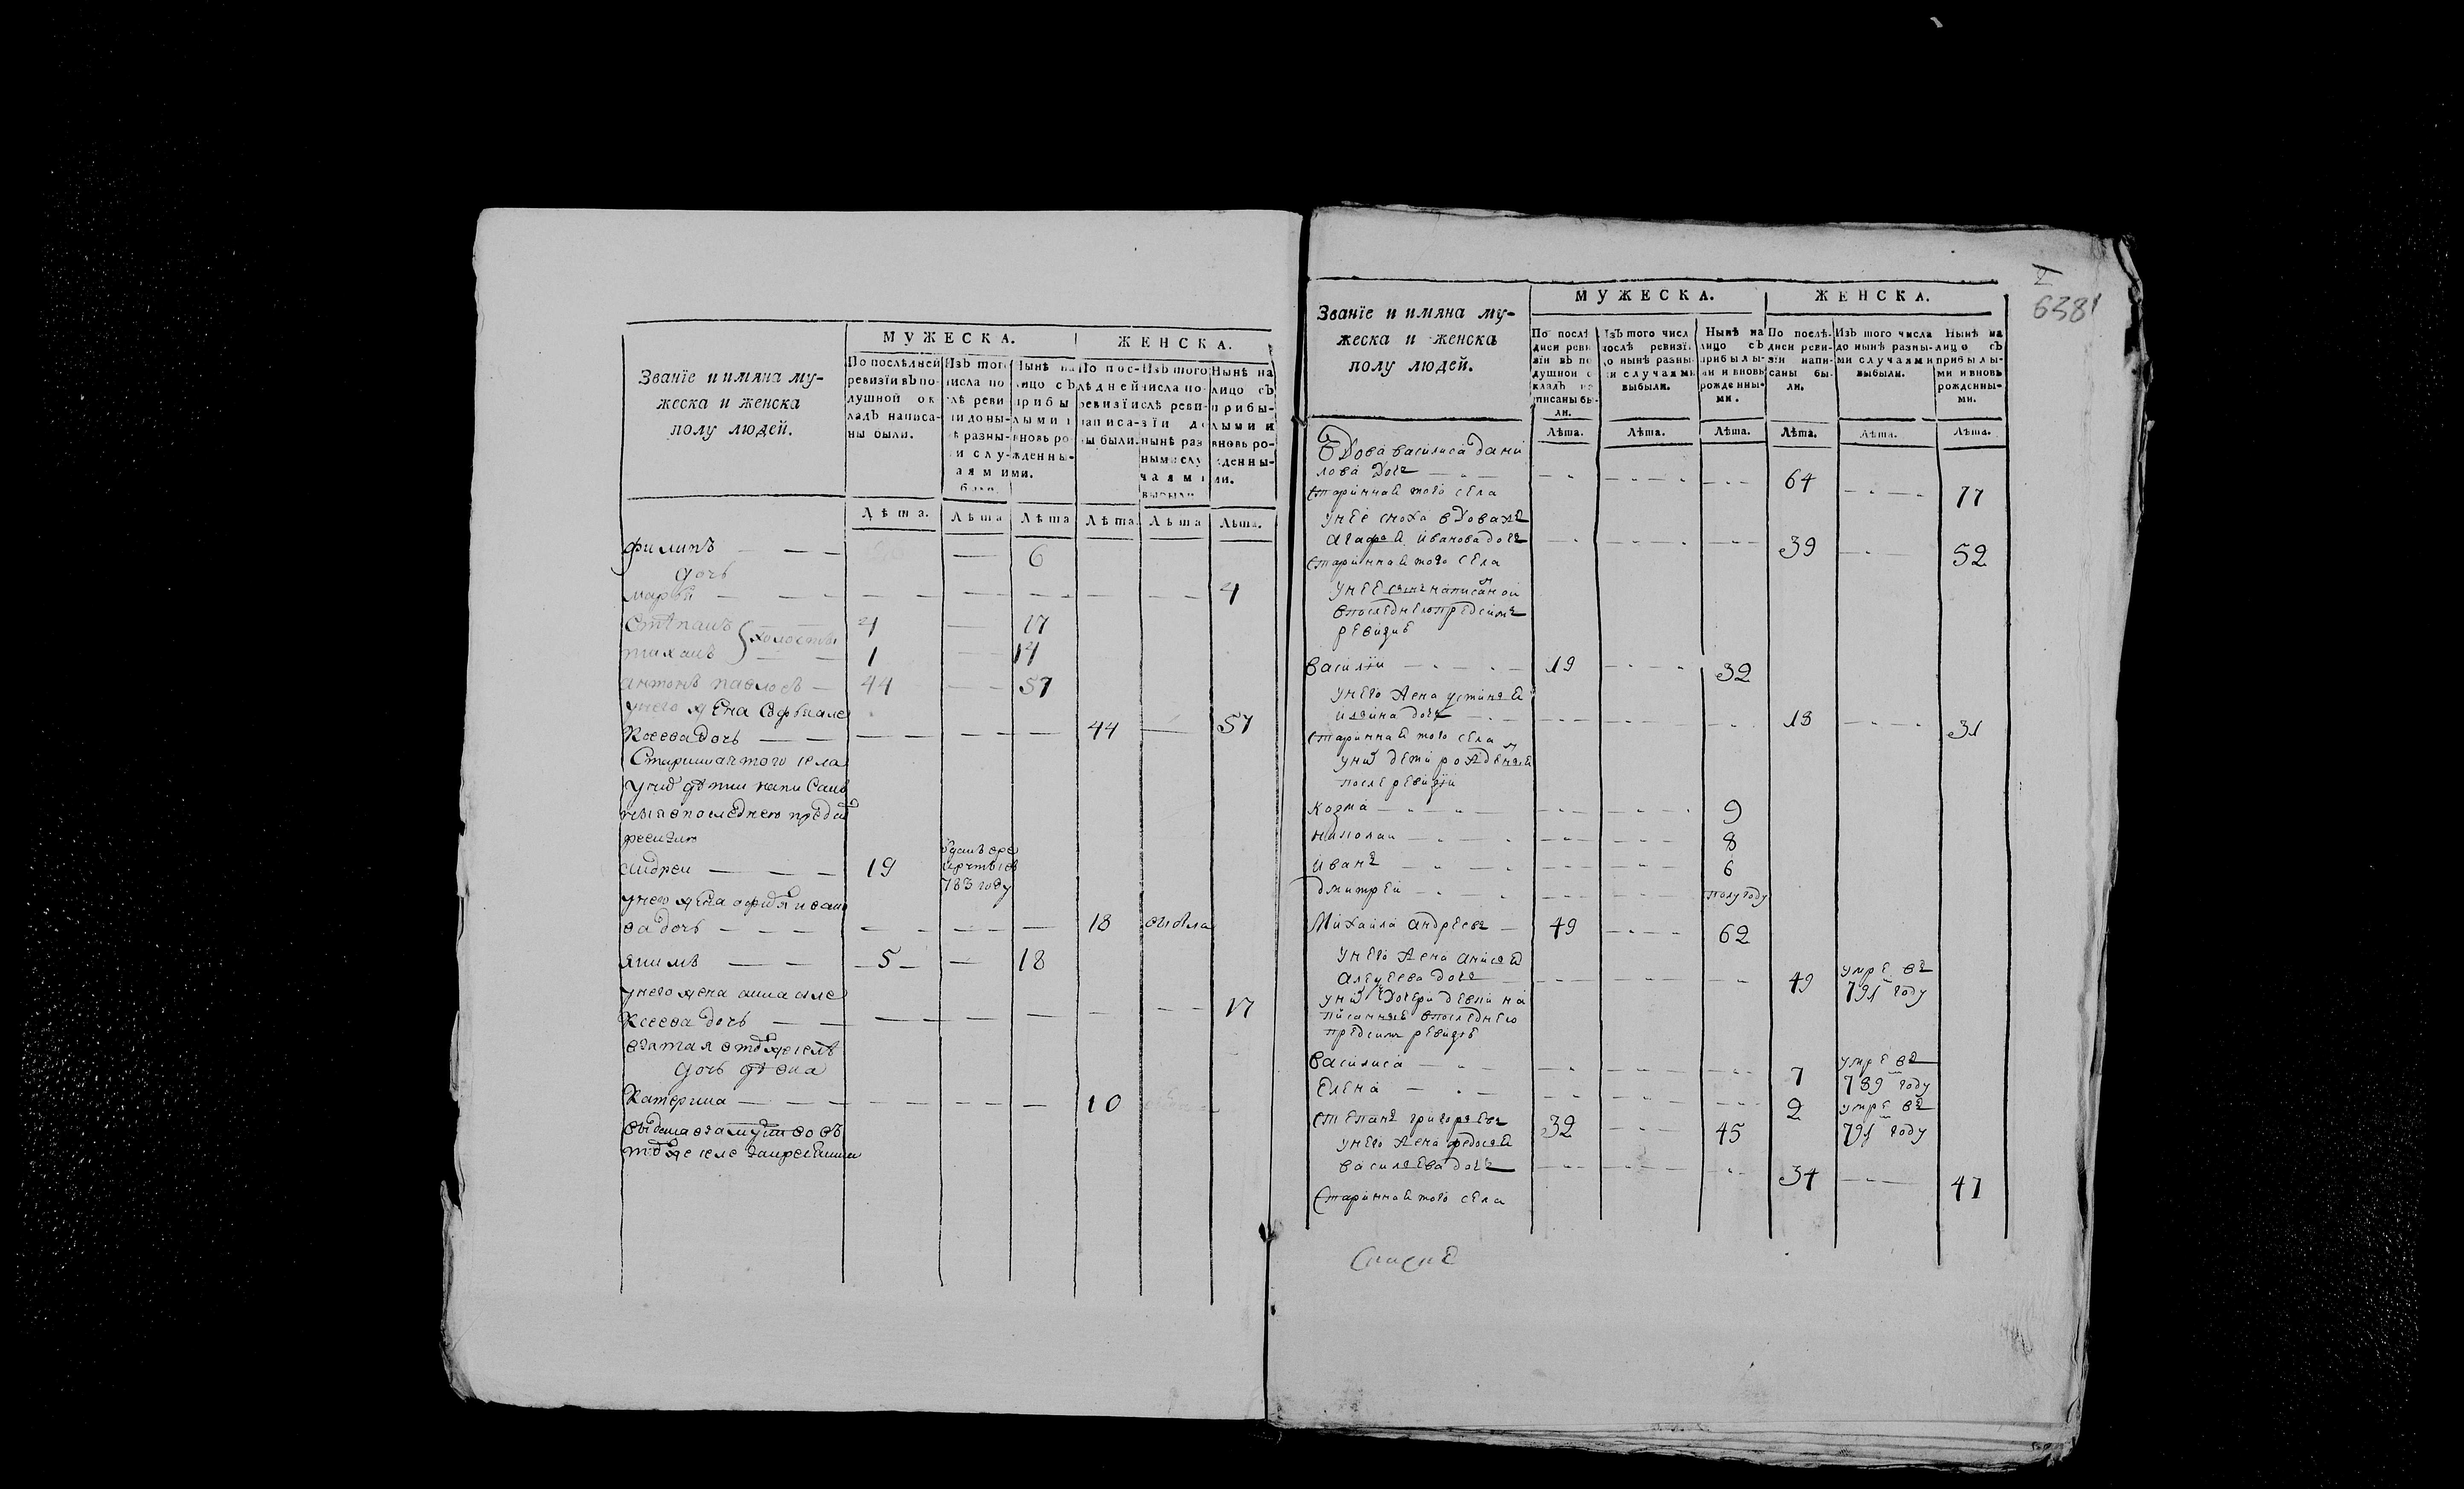 Званїе и имяна му-
жеска и женска
полу людей.
МУЖЕСКА.
ЖЕНСКА.
По послѣдней
ревизїи вЪ по-
душной ок
ладЪ написа-
ны были.
ИзЪ того
числа по
слѣ реви
Нынѣ на
лицо сЪ
прибы
лыми и
вновь ро-
жденны-
ми.
По пос-
лѣдней
ревизїи
написа-
ны были.
ИзЪ того
числа по-
слѣ реви-
зїи до
нынѣ раз
ными слу
чаями
выбыли
Нынѣ на
лицо сЪ
прибы-
лыми и
вновь ро-
жденны-
ми.
Лѣта.
Лѣта
Лѣта
Лѣта.
Лѣта
Лѣта.
филипъ — — — 6
дочь
марья — — — 4
Степанъ } холосты 4 — 17
1 — 14
антонъ павловъ — 44 — 57
унего жена софья але
ксеева дочь — — 44 — 57
Стариннаятого села
униχ дѣти написан
ныя впоследнею пред сим
ревизию
андреи — — — 19
783 году
унего жена
ва дочь — — — 18 выбыла
якимъ — — 5 — 18
унего жена анна але
ксеева дочь — — 17
взятая втомже селѣ
дочь девка
Катерина — — — 10
выдана взамужство въ
томже селе
Званїе и имяна му-
жеска и женска
полу людей.
МУЖЕСКА.
ЖЕНСКА.
По послѣ
дней реви
зїи вЪ по
душной о
кладЪ на
писаны бы-
ли.
ИзЪ того числ
послѣ ревизї
до нынѣ разны
ми случаями
выбыли.
Нынѣ на
лицо сЪ
прибылы-
ми и вновь
рожденны-
ми.
По послѣ-
дней реви-
зїи напи-
саны бы-
ли.
ИзЪ того числа
до нынѣ разны-
ми случаями
выбыли.
Нынѣ на
лицо сЪ
прибылы-
ми и вновь
рожденны-
ми.
Лѣта.
Лѣта.
Лѣта.
Лѣта.
Лѣта.
Лѣта.
638
Вдова василиса дани
лова дочь — 64 — 77
стариннай того села
унее сноха вдоважъ
агафея иванова дочь 39 — 52
стариннай того села
унее сынъ написаной
впоследнеюпредсимъ
ревизие
василїи — 19 — 32
унего жена устинья
ильина дочь — 18 — 31
стариннай того села
униχ дети рожденыя
после ревизїи
козма — 9
николаи — 8
иванъ — 6
дмитреи — полугоду
Михайла андреевъ — 49 — 62
унего жена анисья
алексеева дочь — 49 умре въ
791 году
униχ дочери девки на
писанные впоследнею
предсимъ ревизие
василиса — 7 умре въ
789 году
елена — 2 умре въ
791 году
степанъ григорьевъ 32 — 45
унего жена федосья
васильева дочь — 34 — 47
стариннай того села